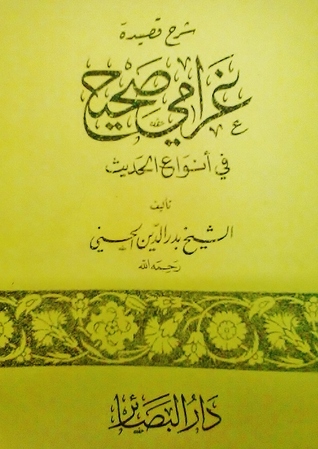 شرح قصيدة
غرامي صحيح
في أنواع الحديث
تأليف
الشيخ بدر الدين الحسني
رحمه الله
دار البصائر